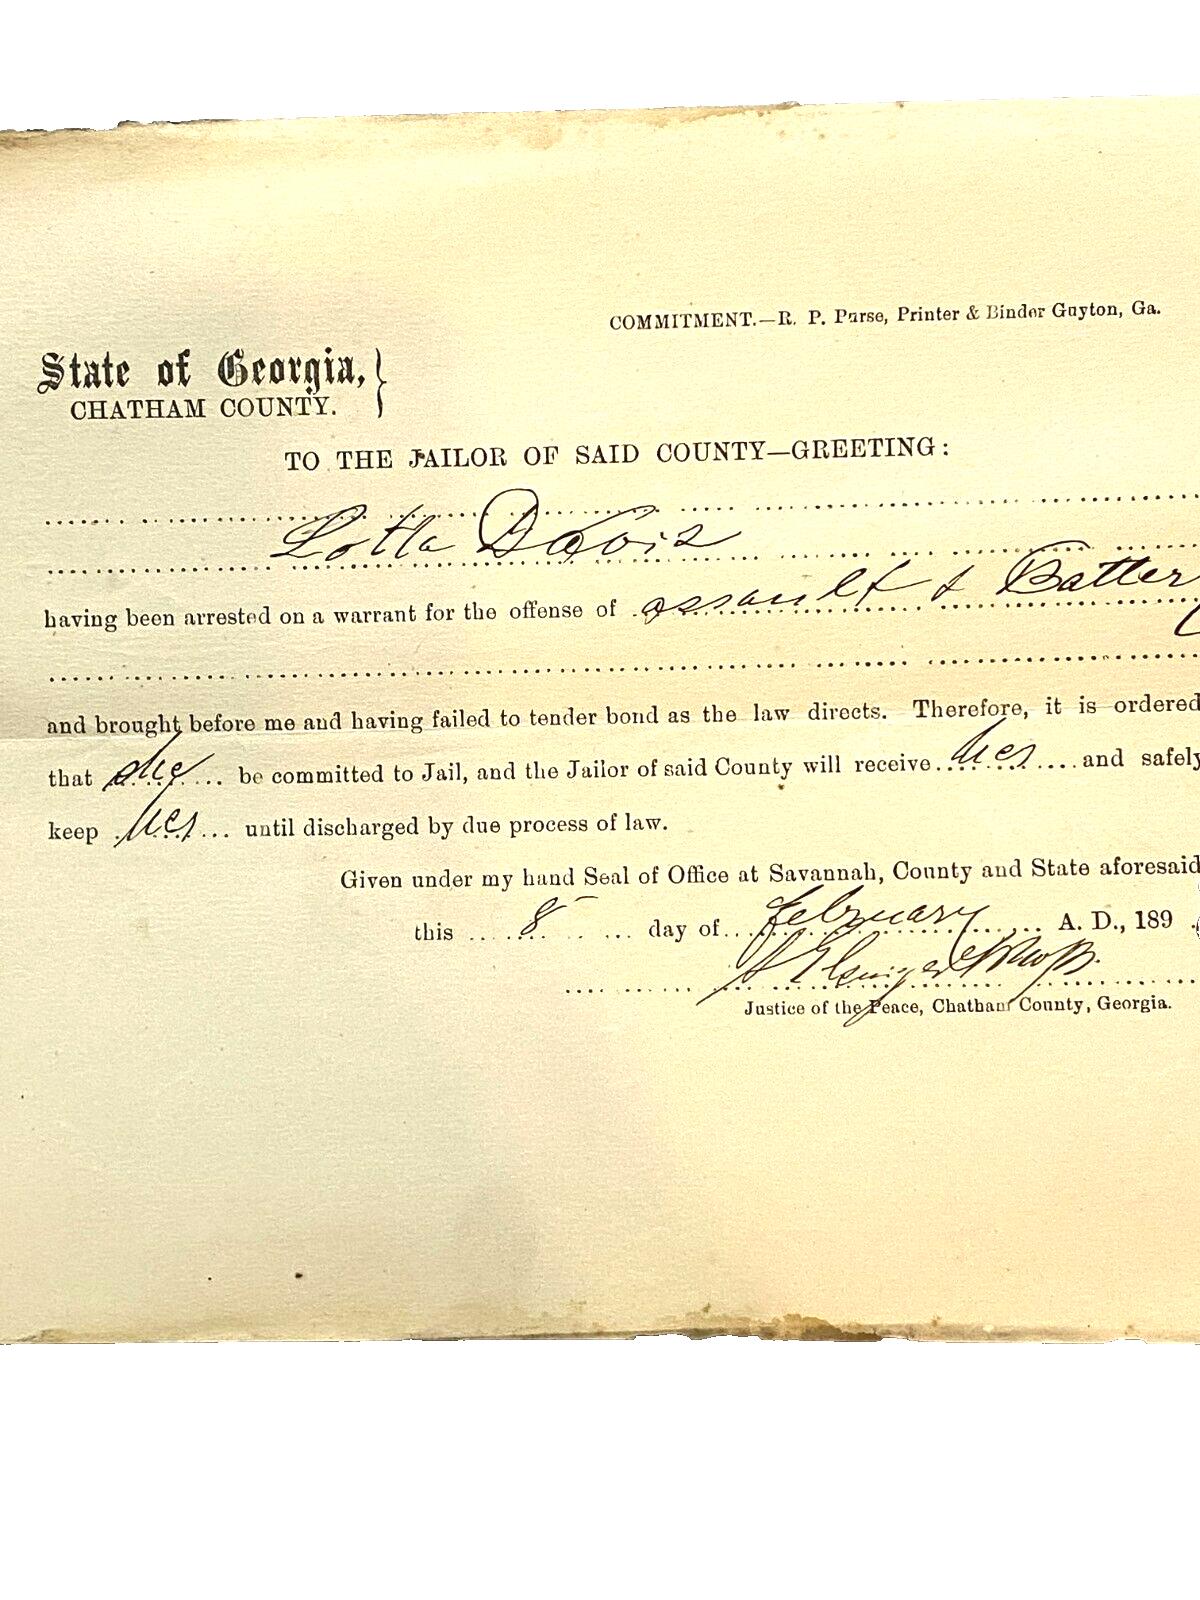 COMMITMENT.—R. P. Purse, Printer & Binder Guyton, Ga.
State of Georgia,
CHATHAM COUNTY.
TO THE JAILOR OF SAID COUNTY—GREETING:
Lotta Davis
having been arrested on a warrant for the offense of assault & Battery
and brought before me and having failed to tender bond as the law directs. Therefore, it is ordered
that she be committed to Jail, and the Jailor of said County will receive her and safely
keep her until discharged by due process of law.
Given under my hand Seal of Office at Savannah, County and State aforesaid
this 8 day of february A. D., 189
Justice of the Peace, Chatham County, Georgia.